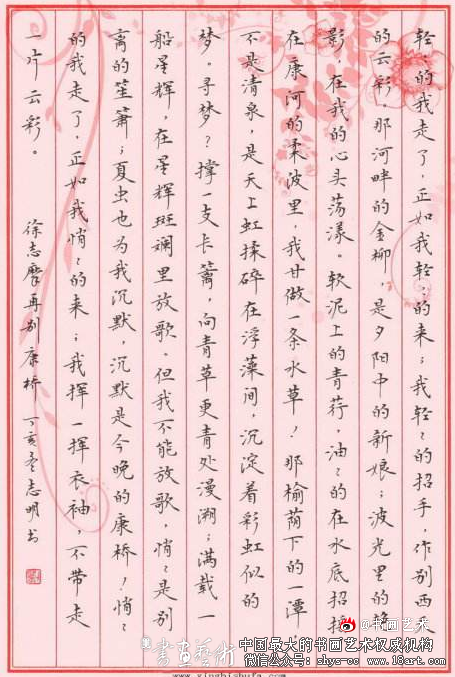 轻〻的我走了，正如我轻〻的来；我轻〻的招手，作别西
的云彩。那河畔的金柳，是夕阳中的新娘；波光里的艳
影，在我的心头荡漾。软泥上的青荇，油〻的在水底招摇
在康河的柔波里，我甘做一条水草！那榆荫下的一潭
不是清泉，是天上虹揉碎在浮藻间，沉淀着彩虹似的
梦。寻梦？撑一支长篙，向青草更青处漫溯；满载一
船星辉，在星辉斑斓里放歌。但我不能放歌，悄〻是别
离的笙箫；夏虫也为我沉默，沉默是今晚的康桥！悄〻
的我走了，正如我悄〻的来；我挥一挥衣袖，不带走
一片云彩。
徐志摩再别康桥 丁亥冬志明书
@书画艺术
書畫藝術
中国最大的书画艺术权威机构
微信公众号：shys-cc www.18art.com
www.yingbishufa.com